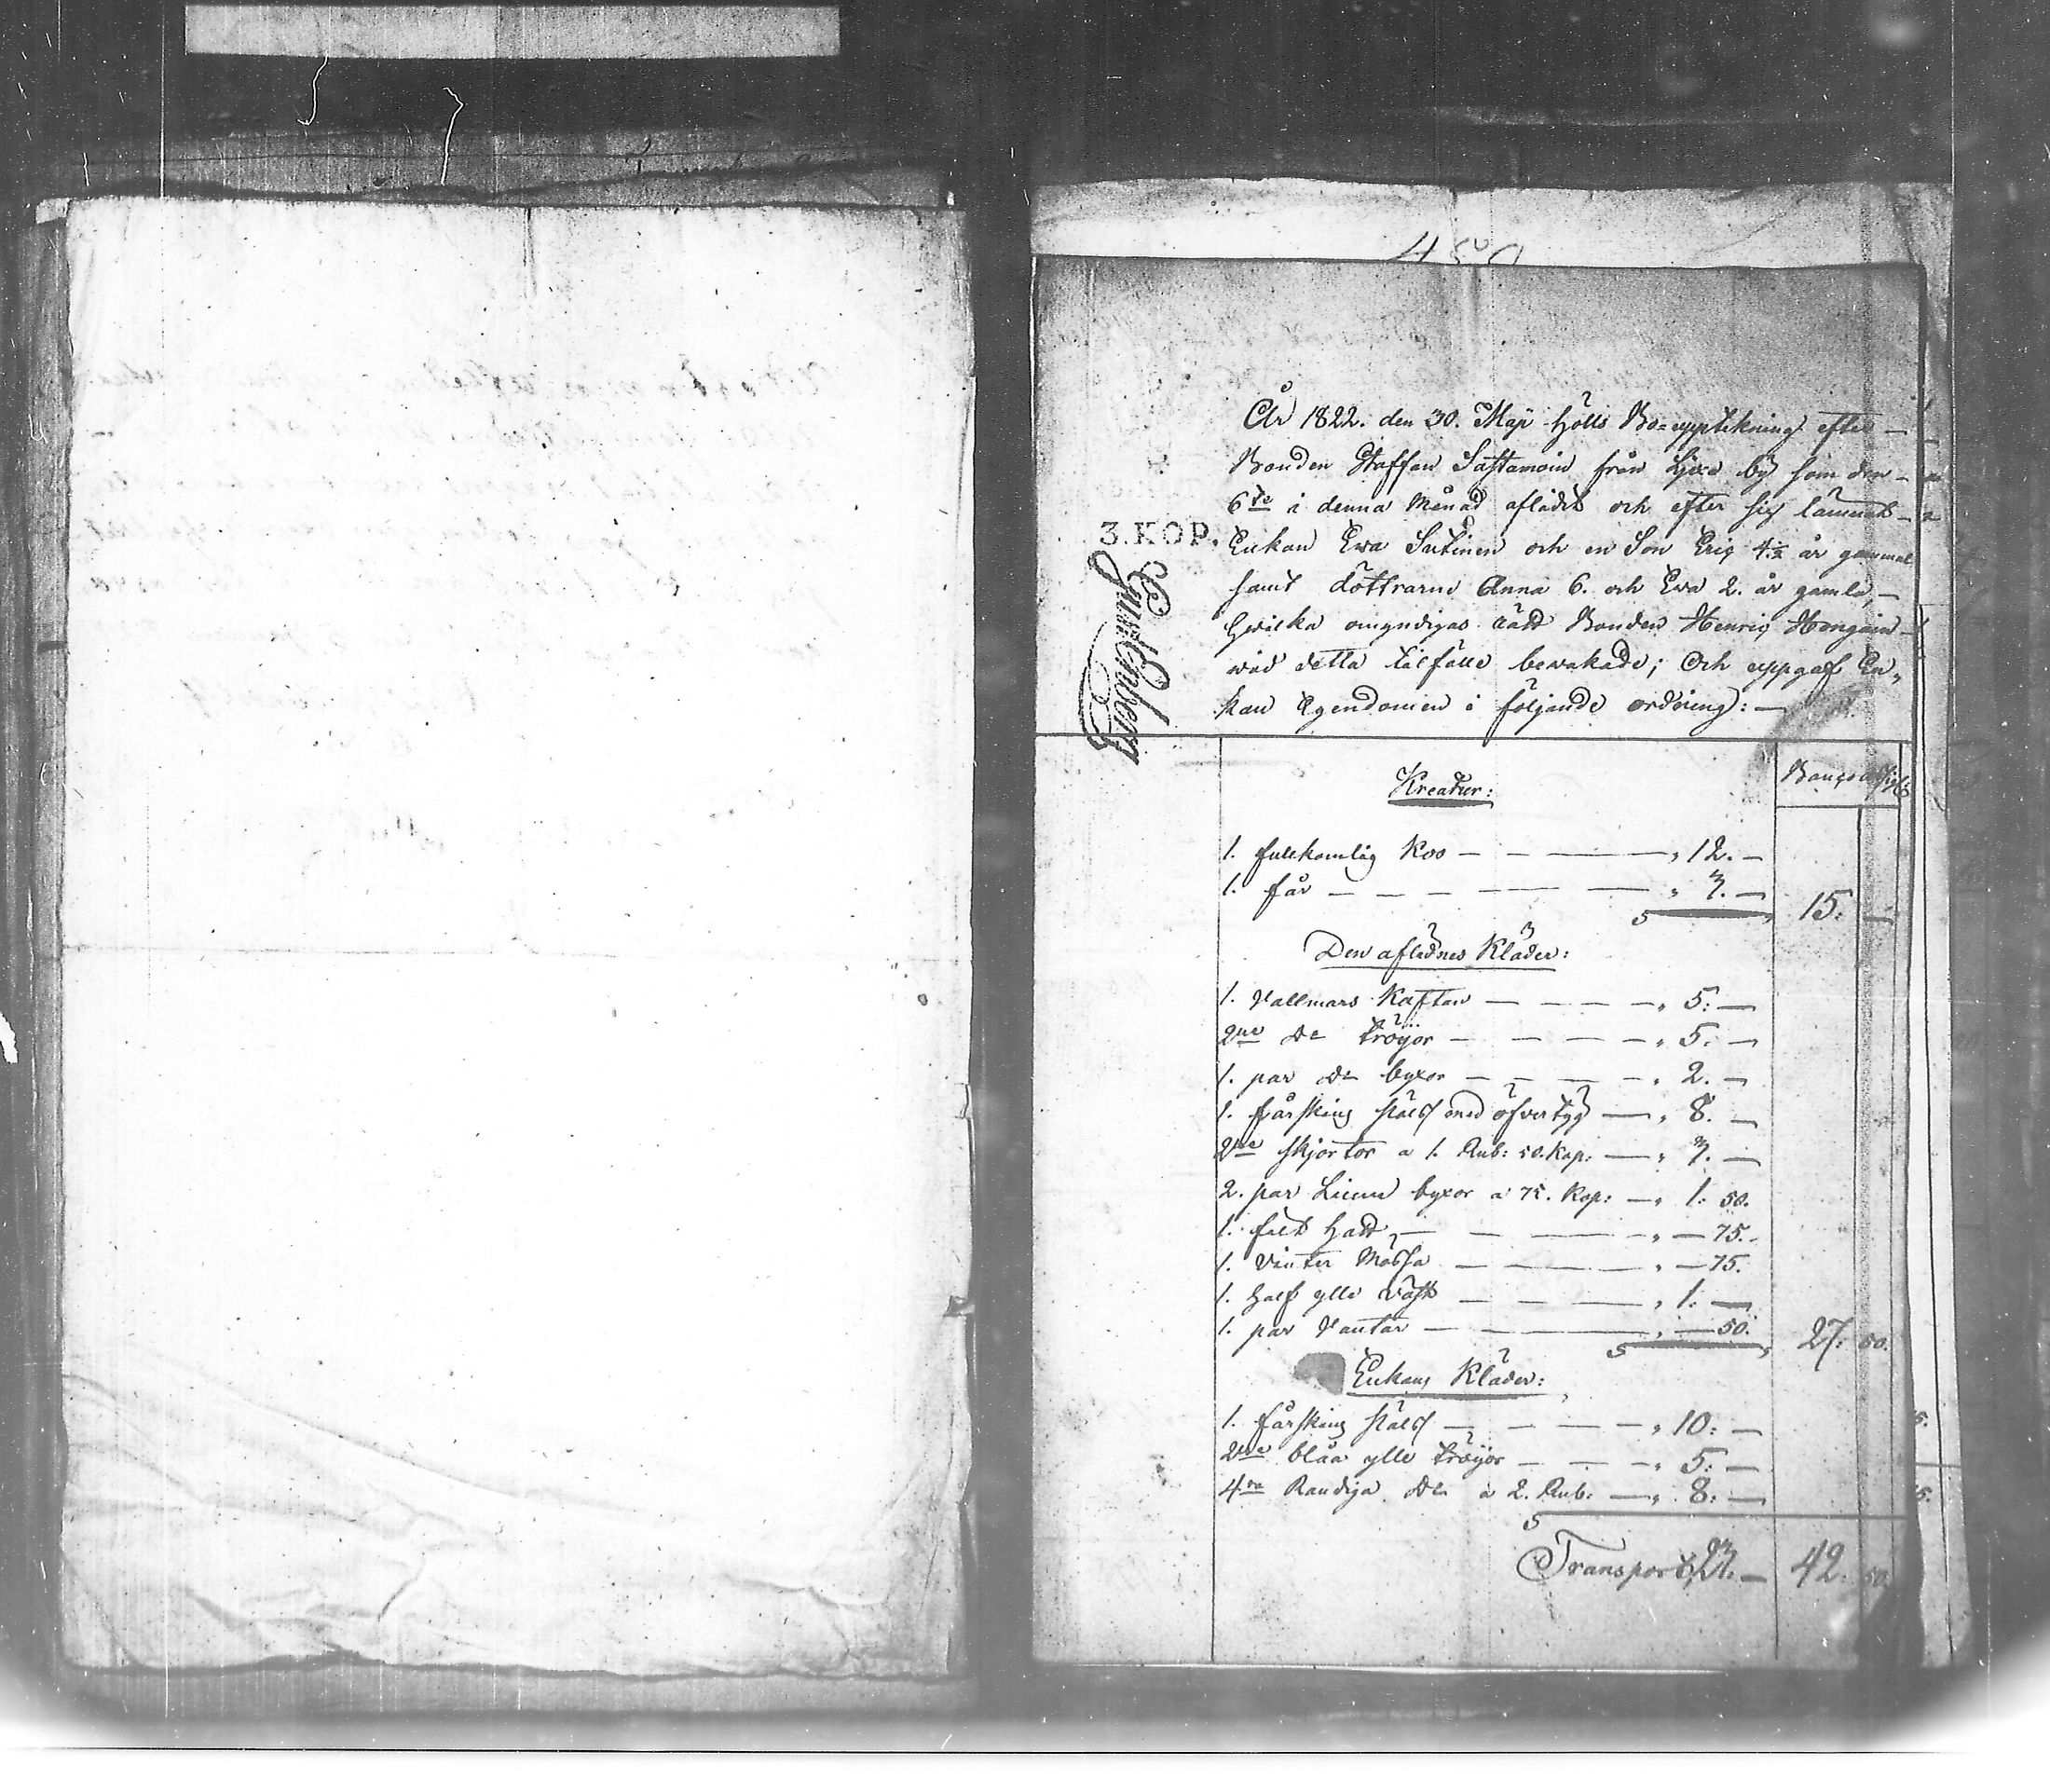 År 1822. den 30. Maji hölls Bo-upptekning efter
Bonden Staffan Sastamoin från by som den
6te i denna Månad afledit och efter sig lämnat
3. KOP.
Enkan Ewa Sutinen och en Son Eric 4½ år gammal
samt döttrarne Anna 6. och Ewa 2. år gamla,
hwilka omyndigas rätt Bonden Henric
wid detta tilfälle bewakade; Och uppgaf En-
kan Egendomen i följande ordning:
Kreatur:
1. fullkomlig Koo 12.
1. får 3.
15.
Den aflednes Kläder:
1. Vallmars Kaftan 5.
2ne do tröijor 5.
1. par do byxor 2.
1. fårskins päls med öfvertyg 8.
2ne skjortor a 1. Rub: 50. Kop: 3.
2. par Linne byxor a 75. Kop: 1. 50.
1. filt hatt 75.
1. Vinter Mössa 75.
1. half ylle väst 1.
1. par Vantar 50.
27. 50.
Enkans Kläder:
1. fårskins päls 10.
2ne blåa ylle tröijor 5.
4ra Randiga do a 2. Rub. 8.
Transport 23. 42. 50.